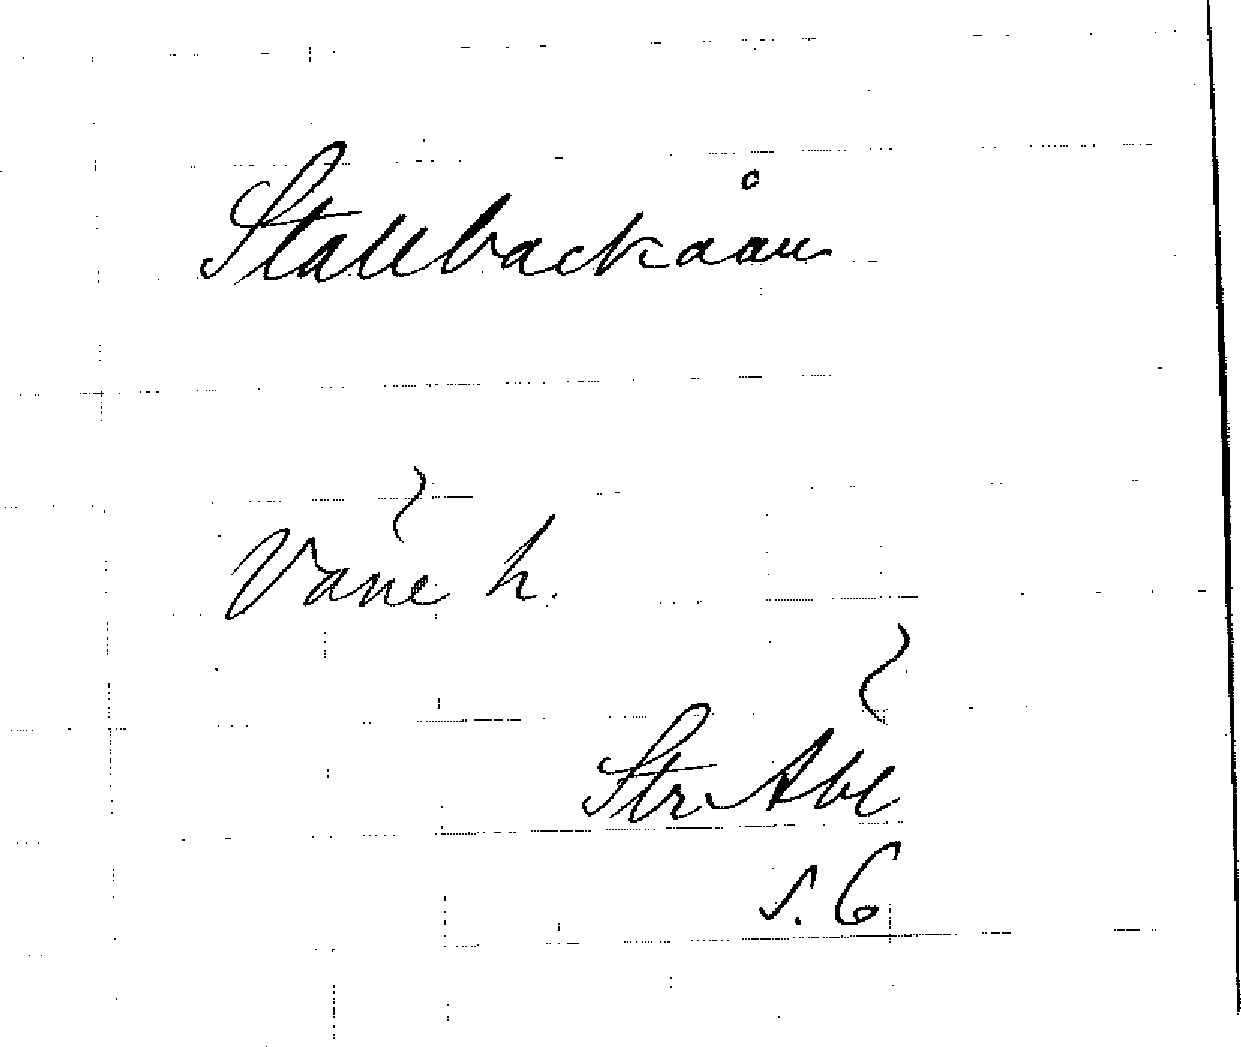 Stallbackaån
Väne h.
Str Abl
s. 6